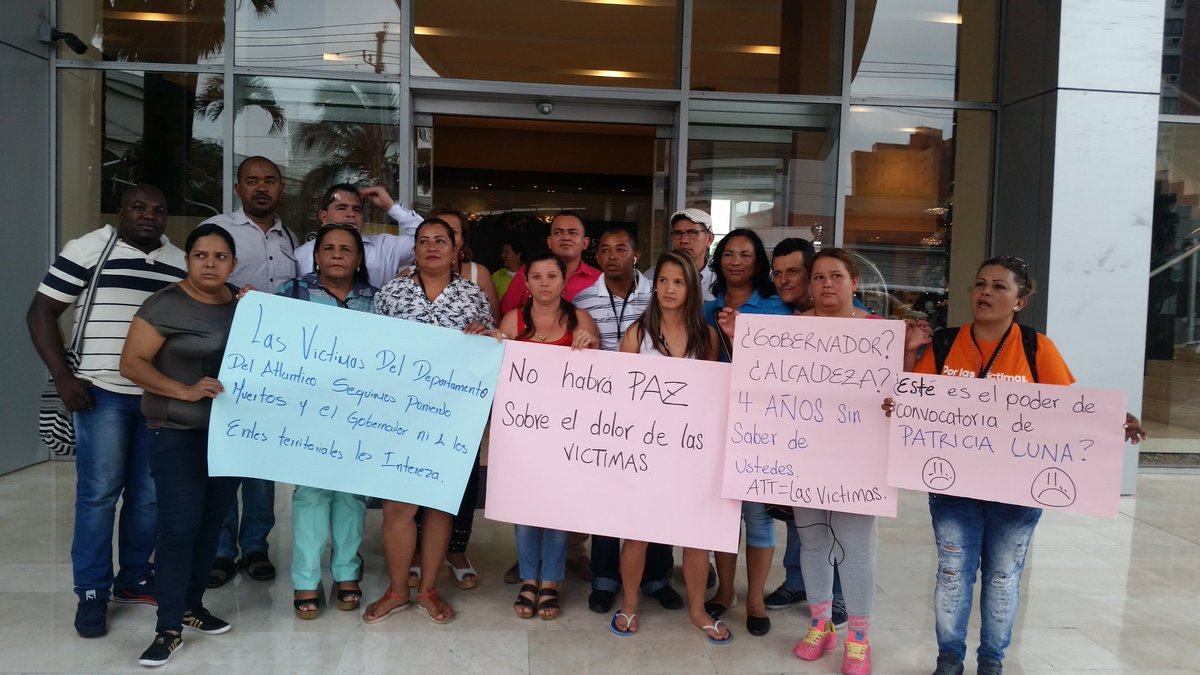 Las Victimas Del Departamento
Del Atlantico Seguimos Poniendo
Muertos y el Gobernador ni A los
Entes territoriales les Intereza.
No habrá PAZ
Sobre el dolor de las
VICTIMAS
¿GOBERNADOR?
¿ALCALDEZA?
4 AÑOS Sin
Saber de
Ustedes.
ATT=Las Victimas.
¿Esté es el poder de
convocatoria de
PATRICIA LUNA?
Por las victimas